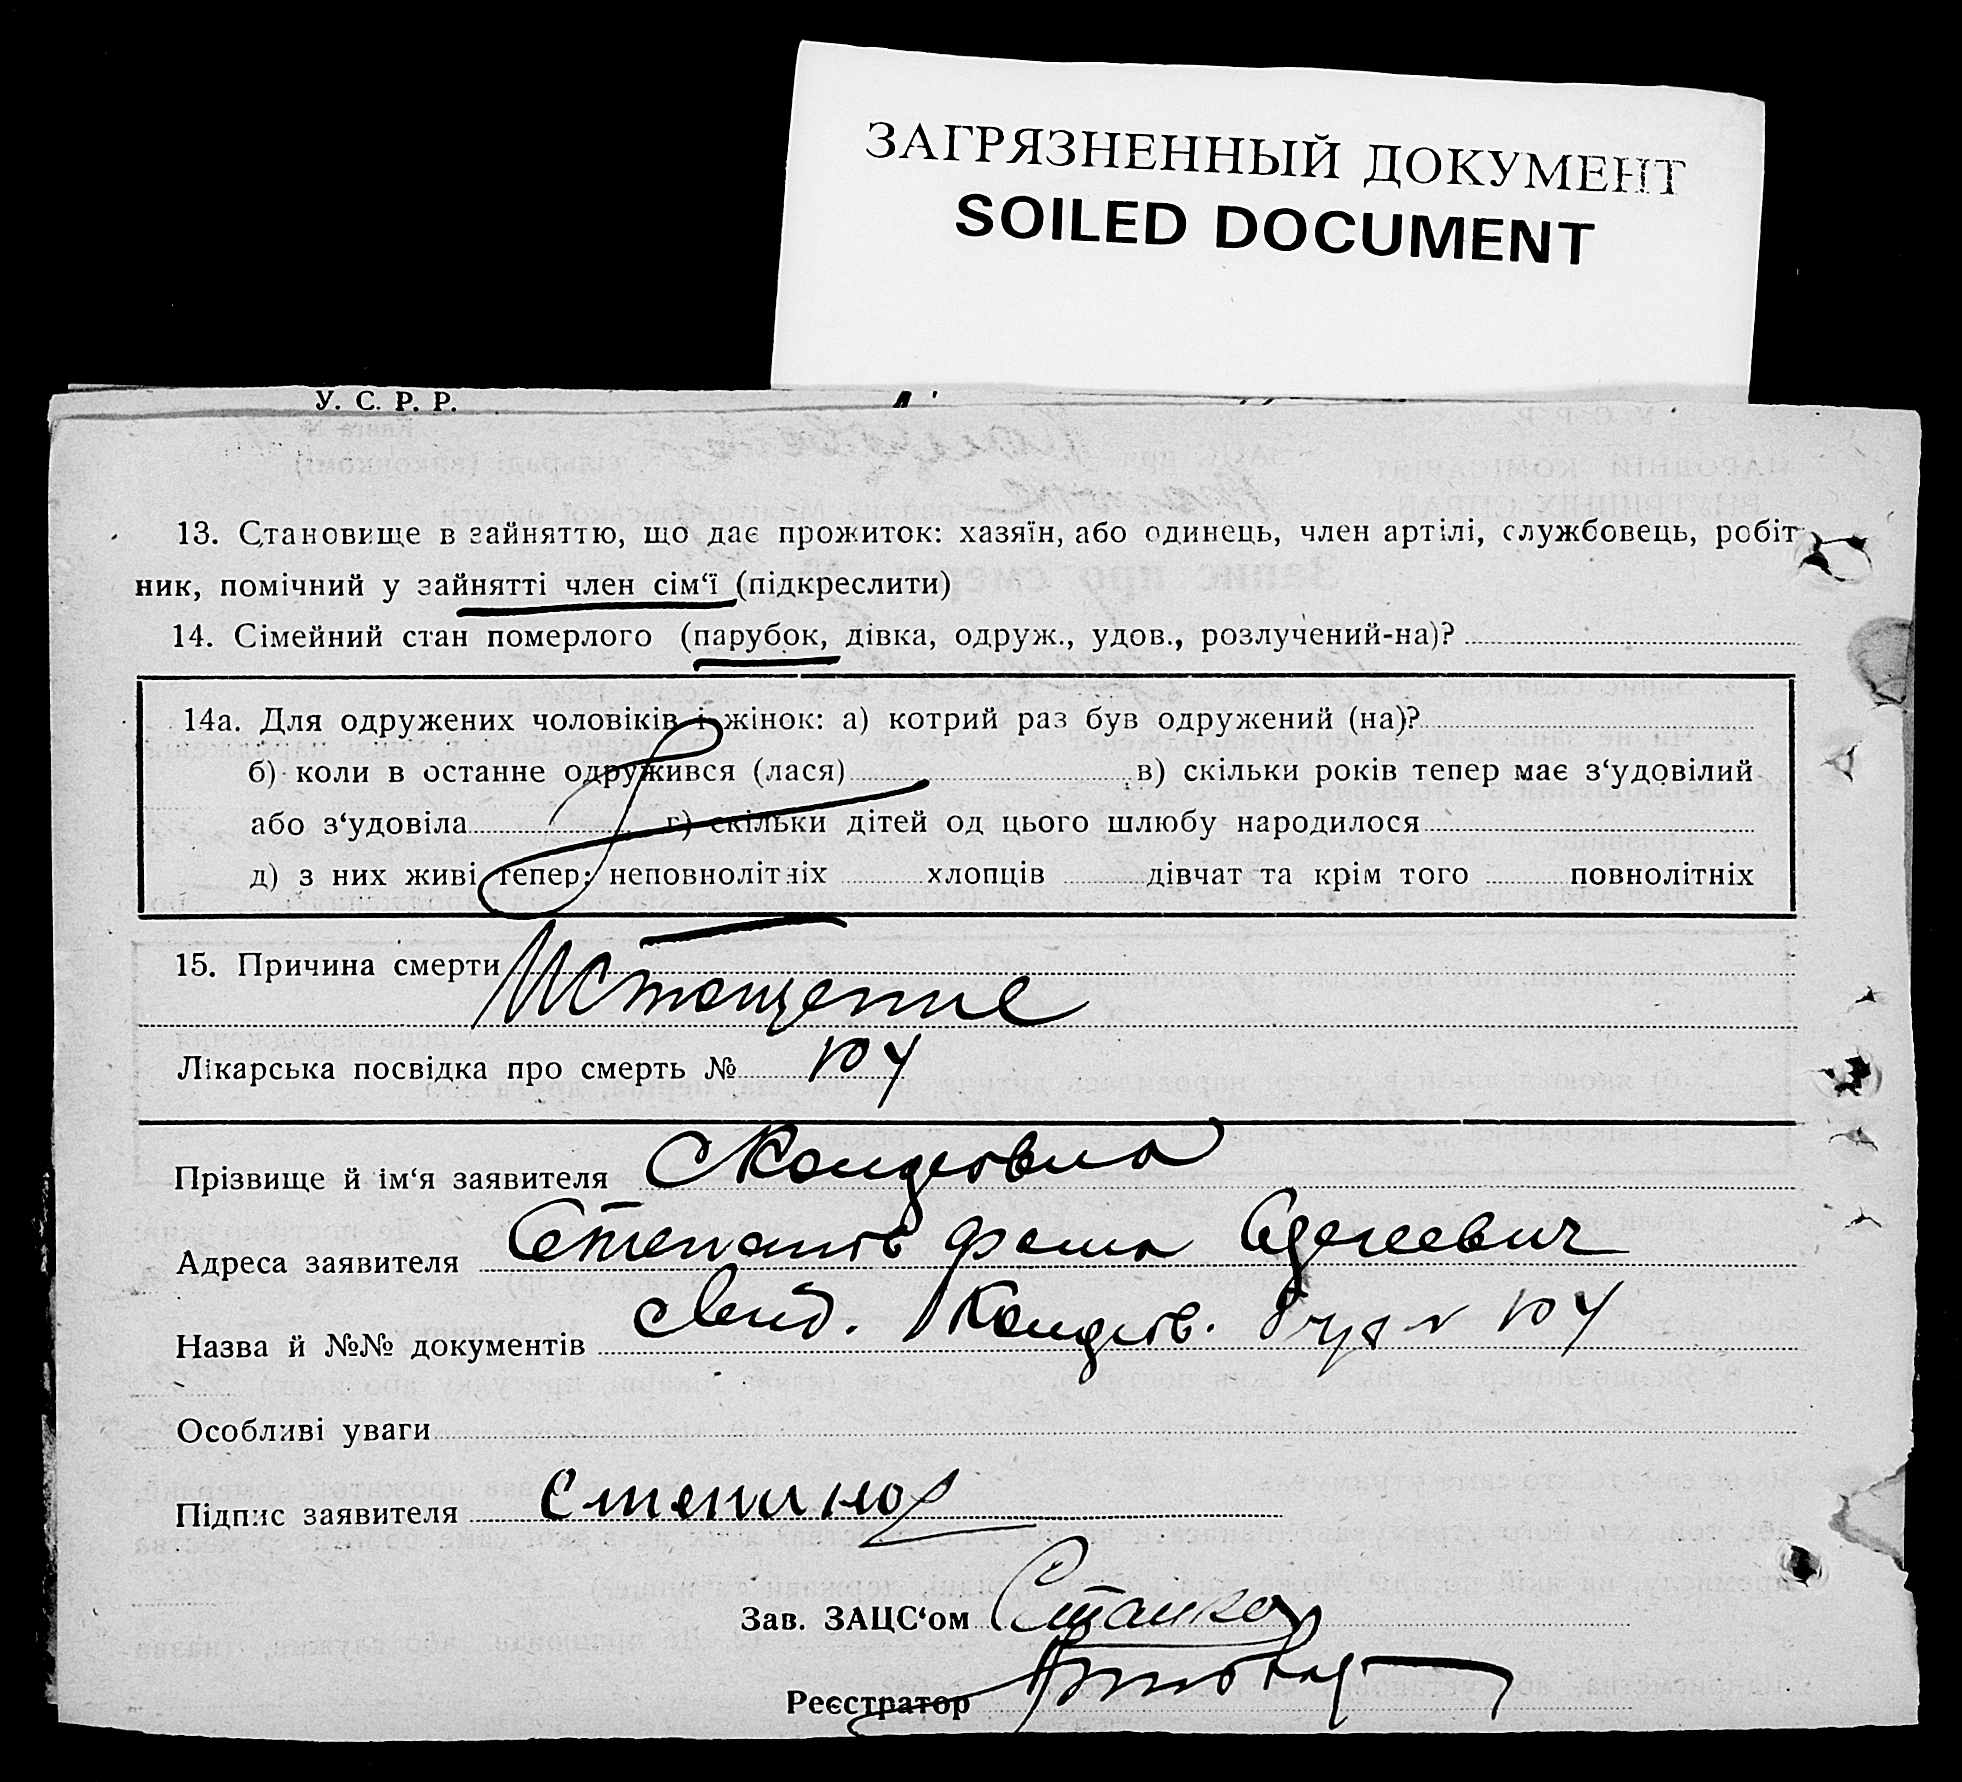 ЗАГРЯЗНЕННЫЙ ДОКУМЕНТ
SOILED DOCUMENT
У. С. Р. Р.
13. Становище в зайняттю, що дає прожиток: хазяїн, або одинець, член артілі, службовець, робіт-
ник, помічний у зайнятті член сім‘ї (підкреслити)
14. Сімейний стан померлого (парубок, дівка, одруж., удов., розлучений-на)?
14а. Для одружених чоловіків і жінок: а) котрий раз був одружений (на)?
б) коли в останне одружився (лася) в) скільки років тепер має з‘удовілий
або з‘удовіла г) скільки дітей од цього шлюбу народилося
д) з них живі тепер: неповнолітніх хлопців дівчат та крім того повнолітніх
15. Причина смерти Истощение
Лікарська посвідка про смерть №
Прізвище й ім‘я заявителя
Адреса заявителя Степанов
Назва й №№ документів
Особливі уваги
Підпис заявителя
Зав. ЗАЦС‘ом
Реєстратор